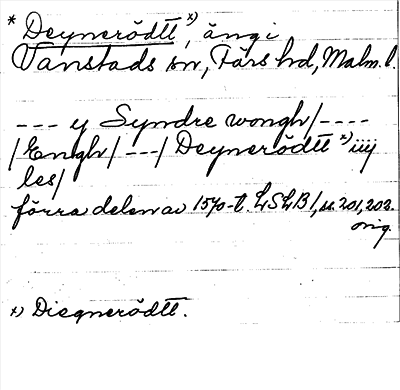 * Deynerödtt x), äng i
Vanstads sn, Färs hd, Malm. l.
--- y Syndre wongh /----
/Enngh/ ---/ Deynerödtt x) iiij
les/
förra delen av 1570-t. LSLB 1, s. 201, 202.
orig.
x) Diegnerödtt.